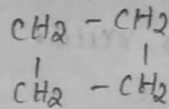 CH2 - CH2
| |
CH2 - CH2